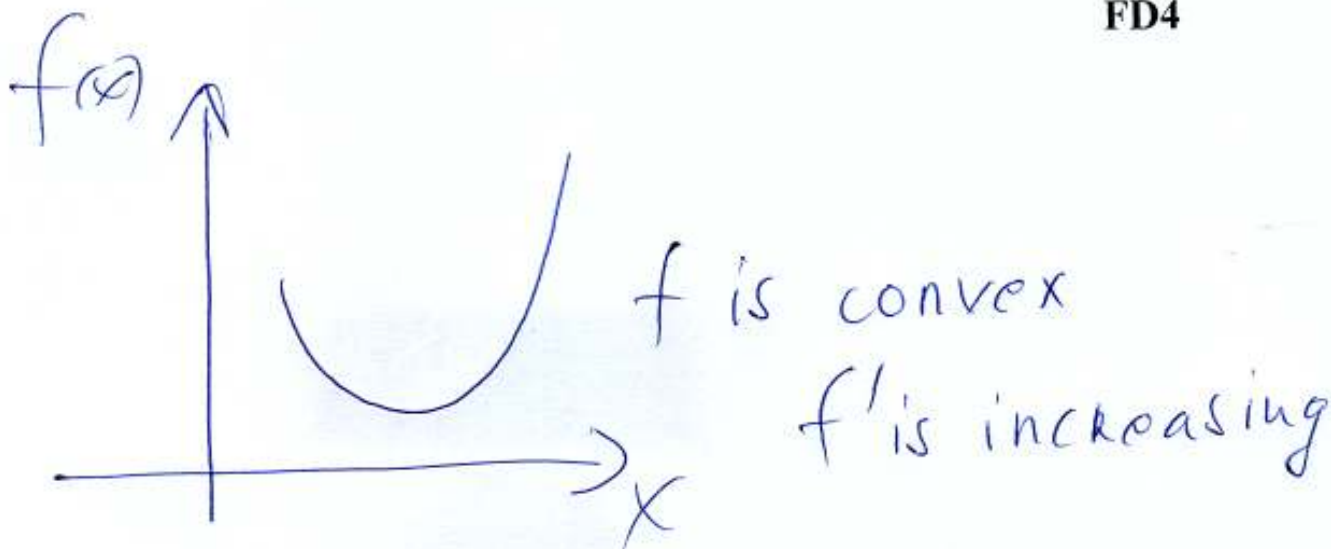 FD4
f(x)
f is convex
f' is increasing
x